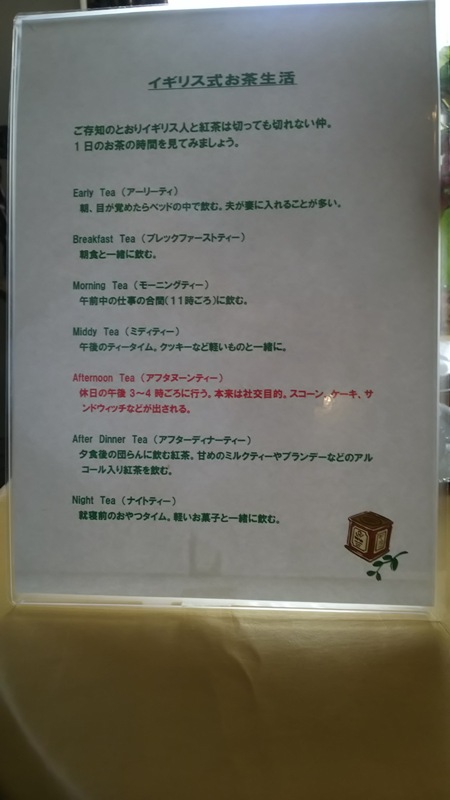 イギリス式お茶生活
ご存知のとおりイギリス人と紅茶は切っても切れない仲。
1日のお茶の時間を見てみましょう。
Early Tea（アーリーティ）
朝、目が覚めたらベッドの中で飲む。夫が妻に入れることが多い。
Breakfast Tea（ブレックファーストティー）
朝食と一緒に飲む。
Morning Tea（モーニングティー）
午前中の仕事の合間（11時ごろ）に飲む。
Middy Tea（ミディティー）
午後のティータイム。クッキーなど軽いものと一緒に。
Afternoon Tea（アフタヌーンティー）
休日の午後 3～4 時ごろに行う。本来は社交目的。スコーン、ケーキ、サ
ンドウィッチなどが出される。
After Dinner Tea（アフターディナーティー）
夕食後の団らんに飲む紅茶。甘めのミルクティーやブランデーなどのアル
コール入り紅茶を飲む。
Night Tea（ナイトティー）
就寝前のおやつタイム。軽いお菓子と一緒に飲む。